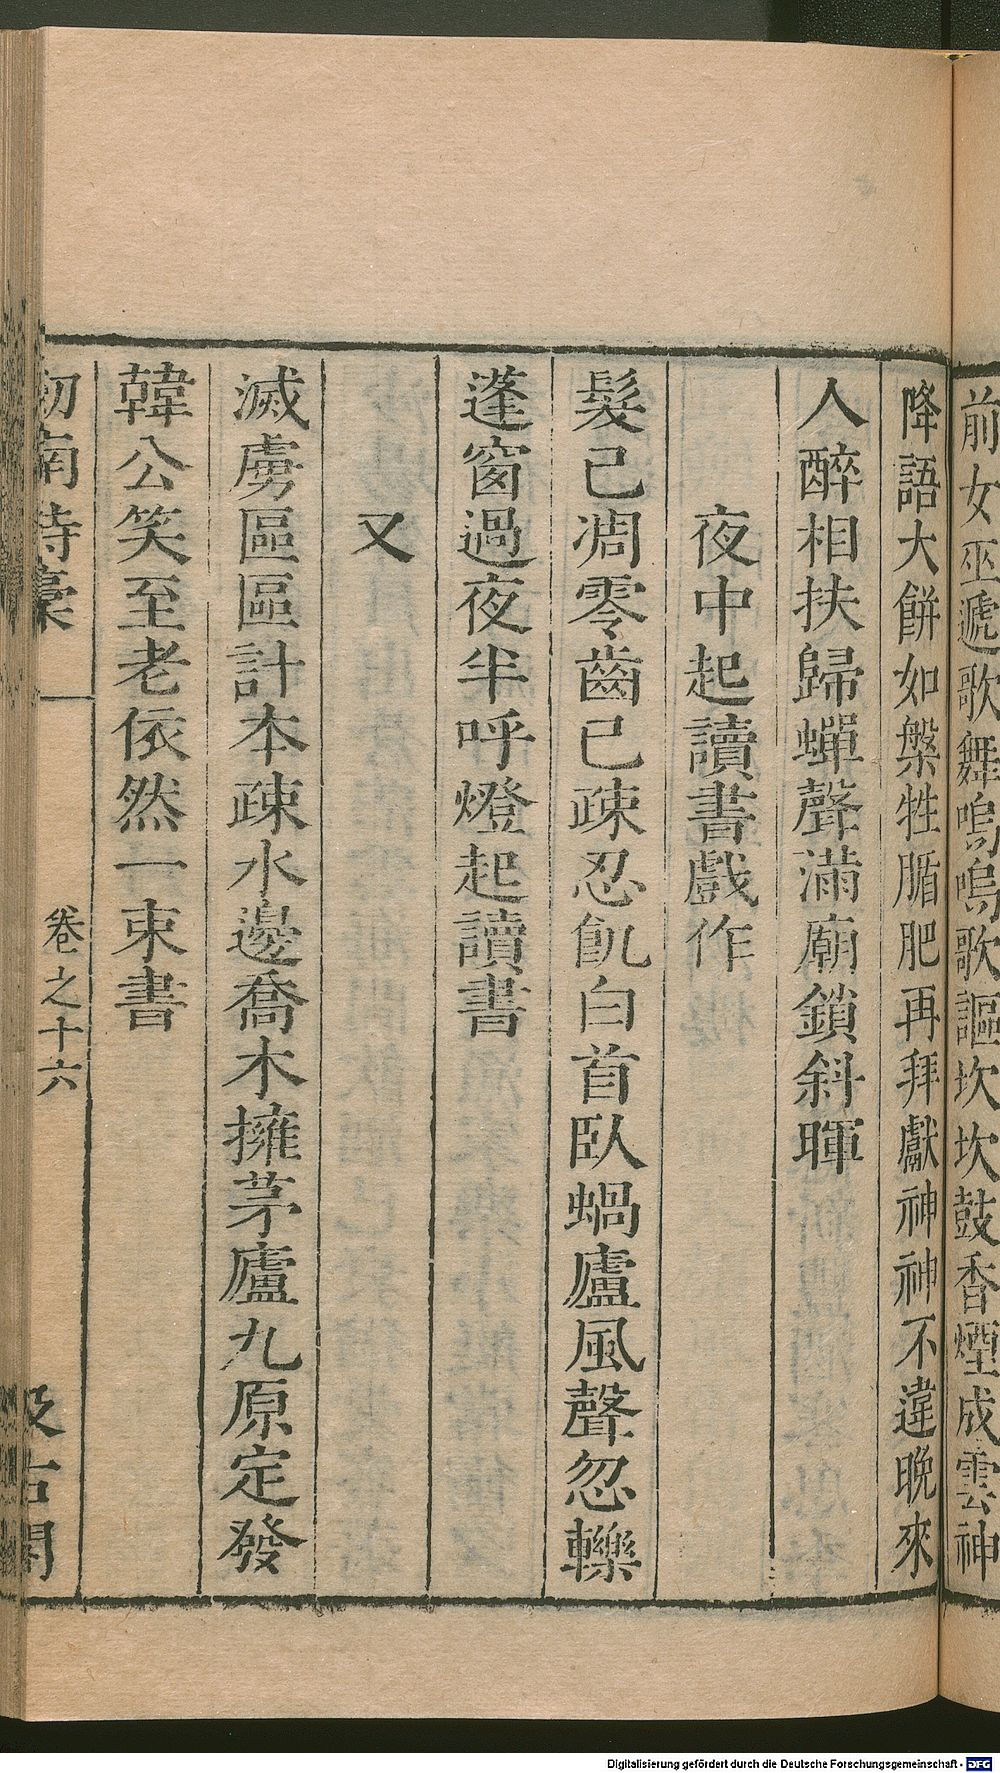 前女巫遞歌舞嗚嗚歌謳坎坎鼓香煙成雲神
降語大餅如槃牲腯肥再拜獻神神不違晚來
人醉相扶歸蟬聲滿廟鎖斜暉
夜中起讀書戲作
髮已凋零齒已疎忍飢白首臥蝸廬風聲忽轢
蓬窗過夜半呼燈起讀書
又
滅虜區區計本疎水邊喬木擁茅廬九原定發
韓公笑至老依然一束書
劒南詩稾 卷之十六 汲古閣
Digitalisierung gefördert durch die Deutsche Forschungsgemeinschaft - DFG